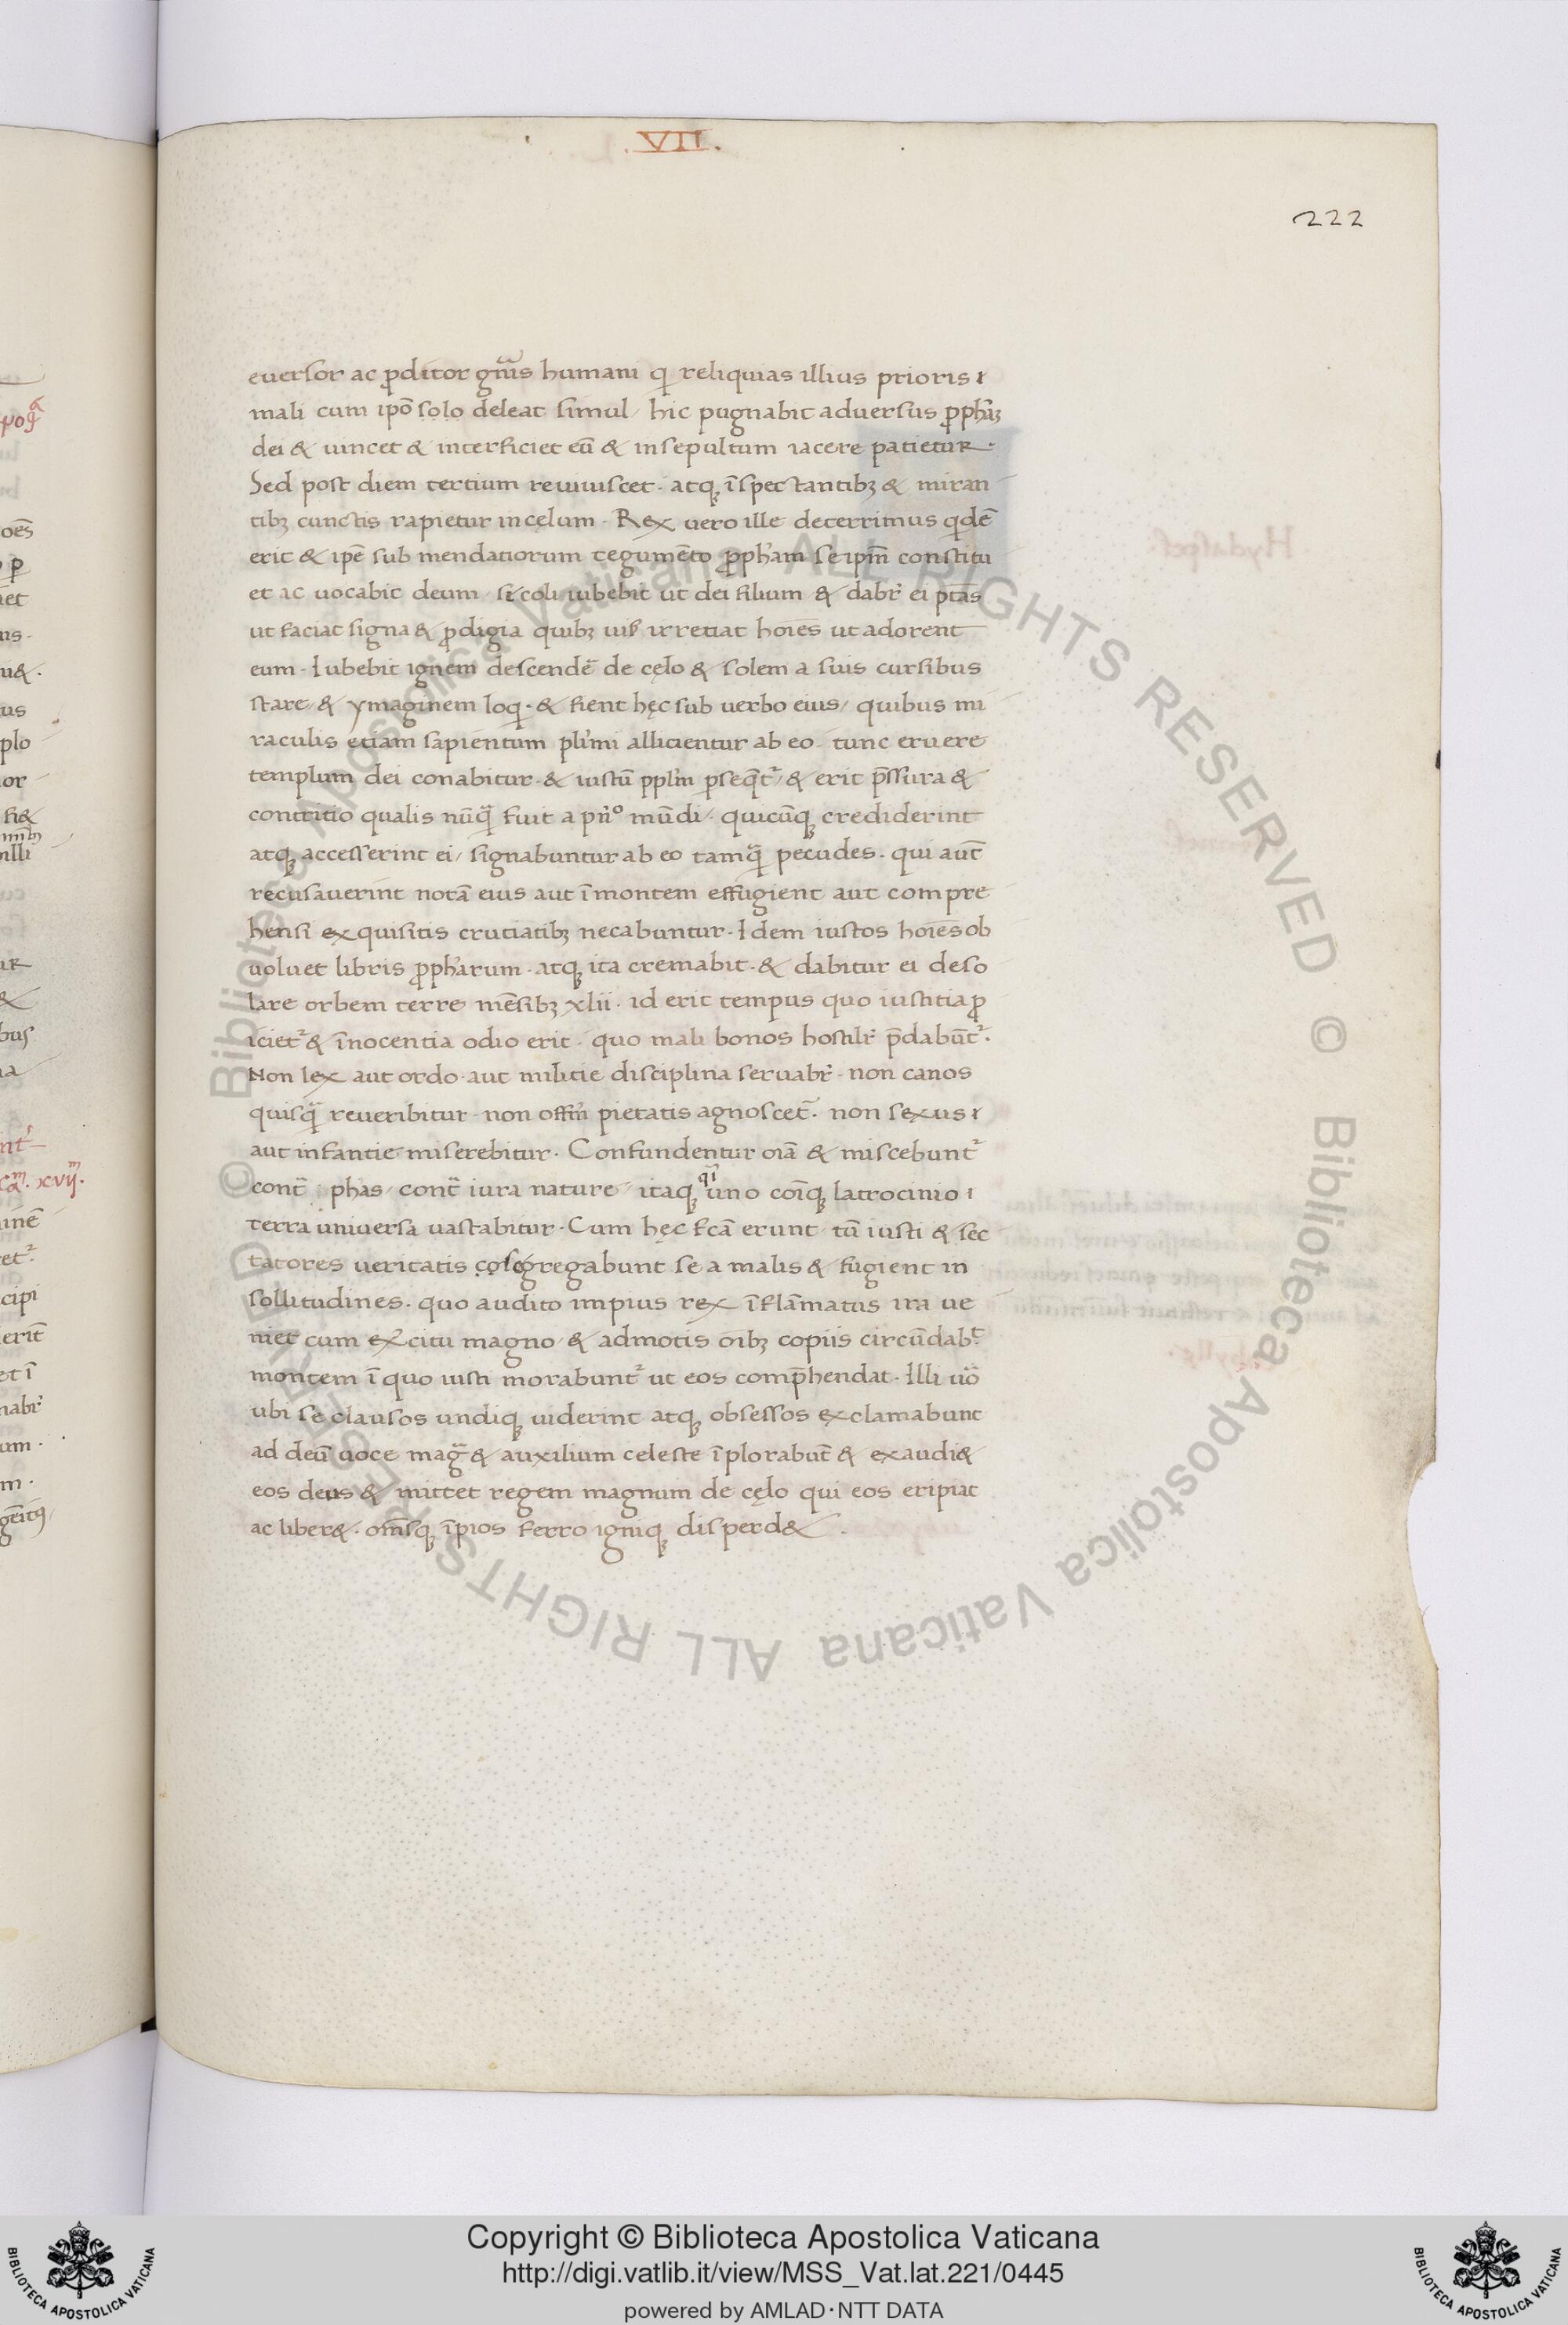 .VII.
222
eversor ac ꝓditor gn̄is humani q̇ reliquias illius prioris
mali cum ipō solo deleat simul / hic pugnabit adversus ꝓph̄ā
dei & vincet & interficiet eū & insepultum iacere patietur ·
Sed post diem tertium reviviscet · atq; īspectantibꝫ & miran
tibꝫ cunctis rapietur in cęlum · Rex vero ille deterrimus q̇dē
erit & ipē sub mendatiorum tegumēto ꝓph̄am se ipm̄ constitu
et ac vocabit deum / se coli iubebit ut dei filium & dabr̄ ei ptās
ut faciat signa & ꝓdigia quibꝫ vis̄ irretiat hoīes ut adorent
eum · Iubebit ignem descendē de cęlo & solem a suis cursibus
stare / & ymaginem loq̇ · & fient hęc sub verbo eius / quibus mi
raculis etiam sapientum plīmi allicientur ab eo · tunc eruere
templum dei conabitur · & iustū pplm̄ ꝑseq̄t᷑ / & erit p̄ssura &
contritio qualis nūq̄ fuit a pn̄º mūdi / quicūq; crediderint
atq; accesserint ei / signabuntur ab eo tamq̄ pecudes · qui aut̄
recusaverint notā eius aut ī montem effugient aut compre
hensi exquisitis cruciatibꝫ necabuntur · Idem iustos hoīes ob
voluet libris ꝓph̄arum · atq; ita cremabit · & dabitur ei deso
lare orbem terre mēsibꝫ xlii · id erit tempus quo iustitia ꝓ
iciet᷑ & īnocentia odio erit · quo mali bonos hostilr̄ p̄dabūt᷑ ·
Non lex aut ordo · aut militie disciplina servabr̄ · non canos
quisq̄ reveribitur · non offm̄ pietatis agnoscet᷑ · non sexus
aut infantie miserebitur · Confundentur oīa & miscebunt᷑
cont̄ phas / cont̄ iura nature / itaq; q̄i uno cōīq; latrocinio
terra universa vastabitur · Cum hęc fcā erunt · tū iusti & sec
tatores veritatis cosēgregabunt se a malis & fugient in
sollitudines · quo audito impius rex īflāmatus ira ve
niet cum ex̄citu magno / & admotis oībꝫ copiis circūdabt̄
montem ī quo iusti morabunt᷑ ut eos comp̄hendat · Illi vō
ubi se clausos undiq; viderint atq; obsessos exclamabunt
ad deū voce mag̃ & auxilium celeste īplorabūt & exaudi&
eos deus & mittet regem magnum de cęlo qui eos eripiat
ac liber& · om̄sq; īpios ferro igniq; disperd& ·
Copyright © Biblioteca Apostolica Vaticana
http://digi.vatlib.it/view/MSS_Vat.lat.221/0445
powered by AMLAD·NTT DATA